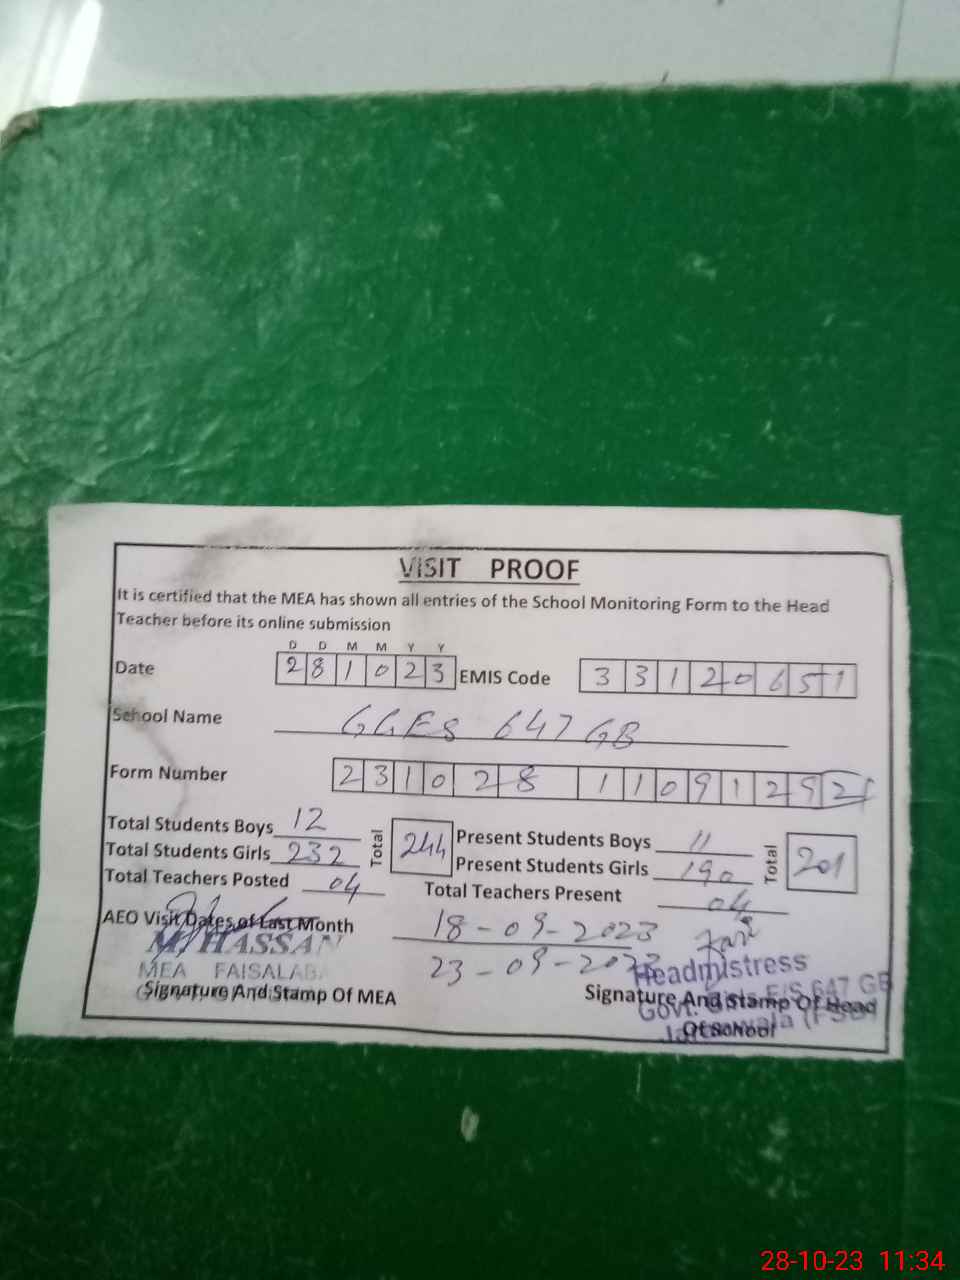 VISIT PROOF
It is certified that the MEA has shown all entries of the School Monitoring Form to the Head
Teacher before its online submission
D D M M Y Y
Date 2 8 1 0 2 3 EMIS Code 3 3 1 2 0 6 5 1
School Name GGES 647 GB
Form Number 2 3 1 0 2 8 1 1 0 9 1 2
Total Students Boys 12 Total 244 Present Students Boys 11 Total 201
Total Students Girls 232 Present Students Girls 190
Total Teachers Posted 04 Total Teachers Present 04
AEO Visit Dates of Last Month 18-09-2023
23-09-2023
M. HASSAN
MEA FAISALABA
Signature And Stamp Of MEA
Headmistress
Govt. Girls E/S 647 GB
Signature And Stamp Of Head
Of School
28-10-23 11:34